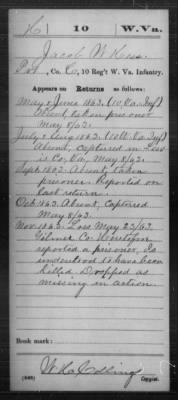 K | 10 | W. Va.
Jacob W. Hess
Pvt., Co. C, 10 Reg't W. Va. Infantry.
Appears on Returns as follows:
May & June 1863. (10 Va. Inf.)
Absent, taken prisoner
May 8/63.
July & Aug 1863. (10 Va. Inf.)
Absent, captured in Lewis
Co. Va. May 8/63.
Sept. 1863. Absent, taken
prisoner. Reported on
last return.
Oct. 1863. Absent, captured
May 8/63.
Nov. 1863. Loss May 23/63.
Gilmer Co. Heretofore
reported a prisoner, is
understood to have been
killed. Dropped as
missing in action.
Book mark:
(546)
Copyist.